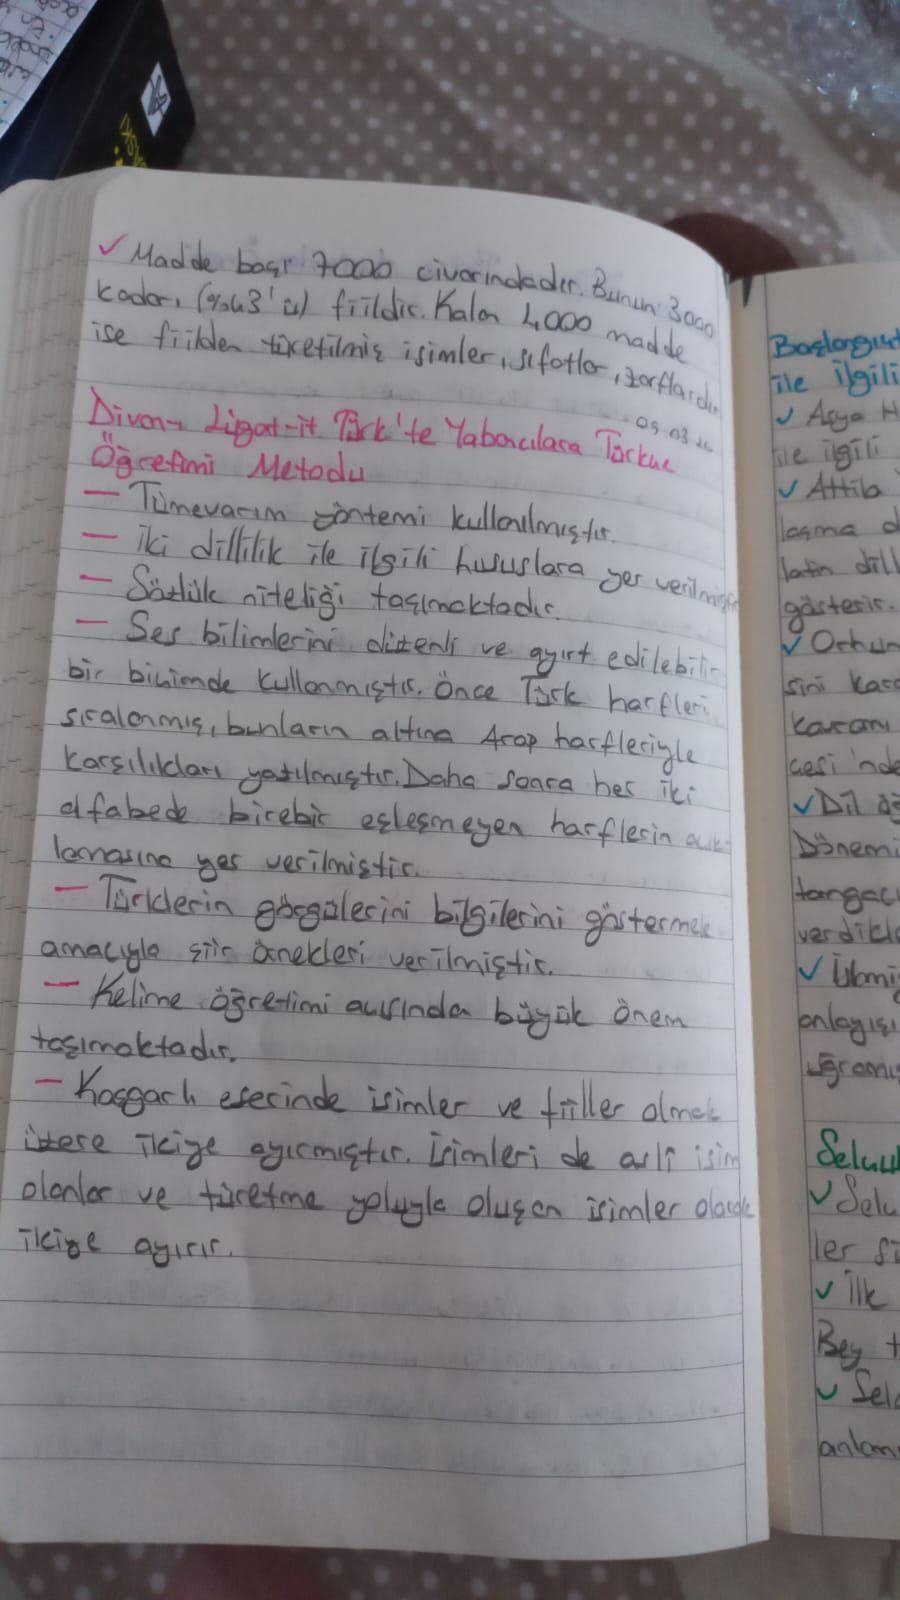 ✓ Madde başı 7000 civarındadır. Bunun 3000
kadarı (%43'ü) fiildir. Kalan 4000 madde
ise fiilden türetilmiş isimler, sıfatlar, zarflardır.
Divan-ı Lügat-it Türk'te Yabancılara Türkçe
Öğretimi Metodu
— Tümevarım yöntemi kullanılmıştır.
— İki dillilik ile ilgili hususlara yer verilmiştir
— Sözlük niteliği taşımaktadır.
— Ses bilimlerini düzenli ve ayırt edilebilir
bir biçimde kullanmıştır. Önce Türk harfleri
sıralanmış, bunların altına Arap harfleriyle
karşılıkları yazılmıştır. Daha sonra her iki
alfabede birebir eşleşmeyen harflerin açık-
lamasına yer verilmiştir.
— Türklerin görgülerini bilgilerini göstermek
amacıyla şiir örnekleri verilmiştir.
— Kelime öğretimi açısından büyük önem
taşımaktadır.
— Kaşgarlı eserinde isimler ve fiiller olmak
üzere ikiye ayırmıştır. İsimleri de asli isim
olanlar ve türetme yoluyla oluşan isimler olarak
ikiye ayırır.
Başlangıçt
ile ilgili
✓ Asya H
ile ilgili
✓ Attila
laşma d
latin dill
gösterir.
✓ Orhun
sini kar
kavramı
çesi'nde
✓ Dil
Dönemi
verdikle
anlayışı
Selçuk
✓ Selç
ler
✓ İlk
Bey
✓ Sel
anlam